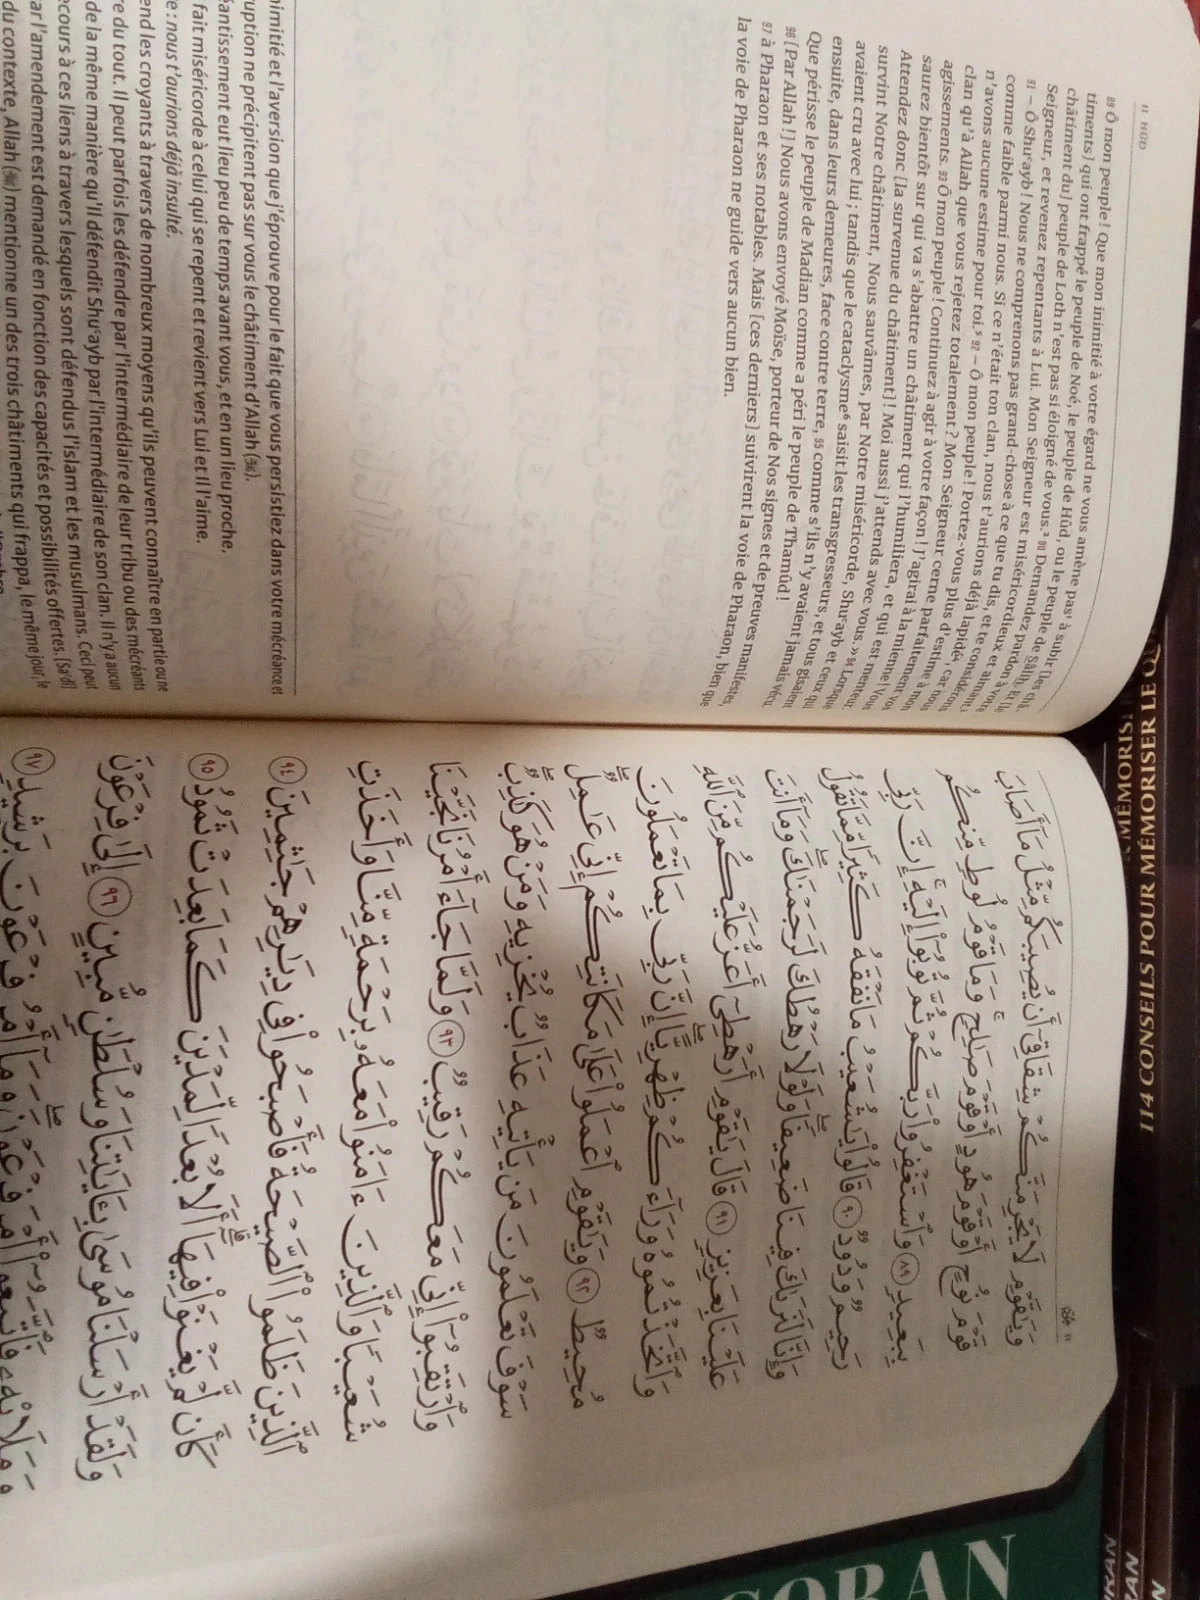 11 HÛD
89 Ô mon peuple ! Que mon inimitié à votre égard ne vous amène pas¹ à subir [les
timents] qui ont frappé le peuple de Noé, le peuple de Hûd, ou le peuple de Sâlih. Et [le
châtiment du] peuple de Loth n'est pas si éloigné de vous.² 90 Demandez pardon à
Seigneur, et revenez repentants à Lui. Mon Seigneur est miséricordieux et aimant
91 – Ô Shuʿayb ! Nous ne comprenons pas grand-chose à ce que tu dis, et te considérons
comme faible parmi nous. Si ce n'était ton clan, nous t'aurions déjà lapidé⁴, car nous
n'avons aucune estime pour toi.⁵ 92 – Ô mon peuple ! Portez-vous plus d'estime à mon
clan qu'à Allah que vous rejetez totalement ? Mon Seigneur cerne parfaitement vos
agissements. 93 Ô mon peuple ! Continuez à agir à votre façon ! J'agirai à la mienne ! Vous
saurez bientôt sur qui va s'abattre un châtiment qui l'humiliera, et qui est menteur.
Attendez donc [la survenue du châtiment] ! Moi aussi j'attends avec vous. » 94 Lorsque
survint Notre châtiment, Nous sauvâmes, par Notre miséricorde, Shuʿayb et ceux qui
avaient cru avec lui ; tandis que le cataclysme⁶ saisit les transgresseurs, et tous gisaient
ensuite, dans leurs demeures, face contre terre, 95 comme s'ils n'y avaient jamais vécu.
Que périsse le peuple de Madian comme a péri le peuple de Thamûd !
96 [Par Allah !] Nous avons envoyé Moïse, porteur de Nos signes et de preuves manifestes,
97 à Pharaon et ses notables. Mais [ces derniers] suivirent la voie de Pharaon, bien que
la voie de Pharaon ne guide vers aucun bien.
nimitié et l'aversion que j'éprouve pour le fait que vous persistiez dans votre mécréance et
ruption ne précipitent pas sur vous le châtiment d'Allah (ﷻ).
éantissement eut lieu peu de temps avant vous, et en un lieu proche.
fait miséricorde à celui qui se repent et revient vers Lui et Il l'aime.
re : nous t'aurions déjà insulté.
end les croyants à travers de nombreux moyens qu'ils peuvent connaître en partie ou ne
re du tout. Il peut parfois les défendre par l'intermédiaire de leur tribu ou des mécréants
de la même manière qu'Il défendit Shuʿayb par l'intermédiaire de son clan. Il n'y a aucun
ecours à ces liens à travers lesquels sont défendus l'islam et les musulmans. Ceci peut
ar l'amendement est demandé en fonction des capacités et possibilités offertes. [Saʿdî]
du contexte, Allah (ﷻ) mentionne un des trois châtiments qui frappa, le même jour, le
١١ هُود
وَيَٰقَوۡمِ لَا يَجۡرِمَنَّكُمۡ شِقَاقِيٓ أَن يُصِيبَكُم مِّثۡلُ مَآ أَصَابَ
قَوۡمَ نُوحٍ أَوۡ قَوۡمَ هُودٍ أَوۡ قَوۡمَ صَٰلِحٖۚ وَمَا قَوۡمُ لُوطٖ مِّنكُم
بِبَعِيدٖ ٨٩ وَٱسۡتَغۡفِرُواْ رَبَّكُمۡ ثُمَّ تُوبُوٓاْ إِلَيۡهِۚ إِنَّ رَبِّي
رَحِيمٞ وَدُودٞ ٩٠ قَالُواْ يَٰشُعَيۡبُ مَا نَفۡقَهُ كَثِيرٗا مِّمَّا تَقُولُ
وَإِنَّا لَنَرَىٰكَ فِينَا ضَعِيفٗاۖ وَلَوۡلَا رَهۡطُكَ لَرَجَمۡنَٰكَۖ وَمَآ أَنتَ
عَلَيۡنَا بِعَزِيزٖ ٩١ قَالَ يَٰقَوۡمِ أَرَهۡطِيٓ أَعَزُّ عَلَيۡكُم مِّنَ ٱللَّهِ
وَٱتَّخَذۡتُمُوهُ وَرَآءَكُمۡ ظِهۡرِيًّاۖ إِنَّ رَبِّي بِمَا تَعۡمَلُونَ
مُحِيطٞ ٩٢ وَيَٰقَوۡمِ ٱعۡمَلُواْ عَلَىٰ مَكَانَتِكُمۡ إِنِّي عَٰمِلٞۖ
سَوۡفَ تَعۡلَمُونَ مَن يَأۡتِيهِ عَذَابٞ يُخۡزِيهِ وَمَنۡ هُوَ كَٰذِبٞۖ
وَٱرۡتَقِبُوٓاْ إِنِّي مَعَكُمۡ رَقِيبٞ ٩٣ وَلَمَّا جَآءَ أَمۡرُنَا نَجَّيۡنَا
شُعَيۡبٗا وَٱلَّذِينَ ءَامَنُواْ مَعَهُۥ بِرَحۡمَةٖ مِّنَّا وَأَخَذَتِ
ٱلَّذِينَ ظَلَمُواْ ٱلصَّيۡحَةُ فَأَصۡبَحُواْ فِي دِيَٰرِهِمۡ جَٰثِمِينَ ٩٤
كَأَن لَّمۡ يَغۡنَوۡاْ فِيهَآۗ أَلَا بُعۡدٗا لِّمَدۡيَنَ كَمَا بَعِدَتۡ ثَمُودُ ٩٥
وَلَقَدۡ أَرۡسَلۡنَا مُوسَىٰ بِـَٔايَٰتِنَا وَسُلۡطَٰنٖ مُّبِينٍ ٩٦ إِلَىٰ فِرۡعَوۡنَ
وَمَلَإِيْهِۦ فَٱتَّبَعُوٓاْ أَمۡرَ فِرۡعَوۡنَۖ وَمَآ أَمۡرُ فِرۡعَوۡنَ بِرَشِيدٖ ٩٧
114 CONSEILS POUR MÉMORISER LE
CORAN